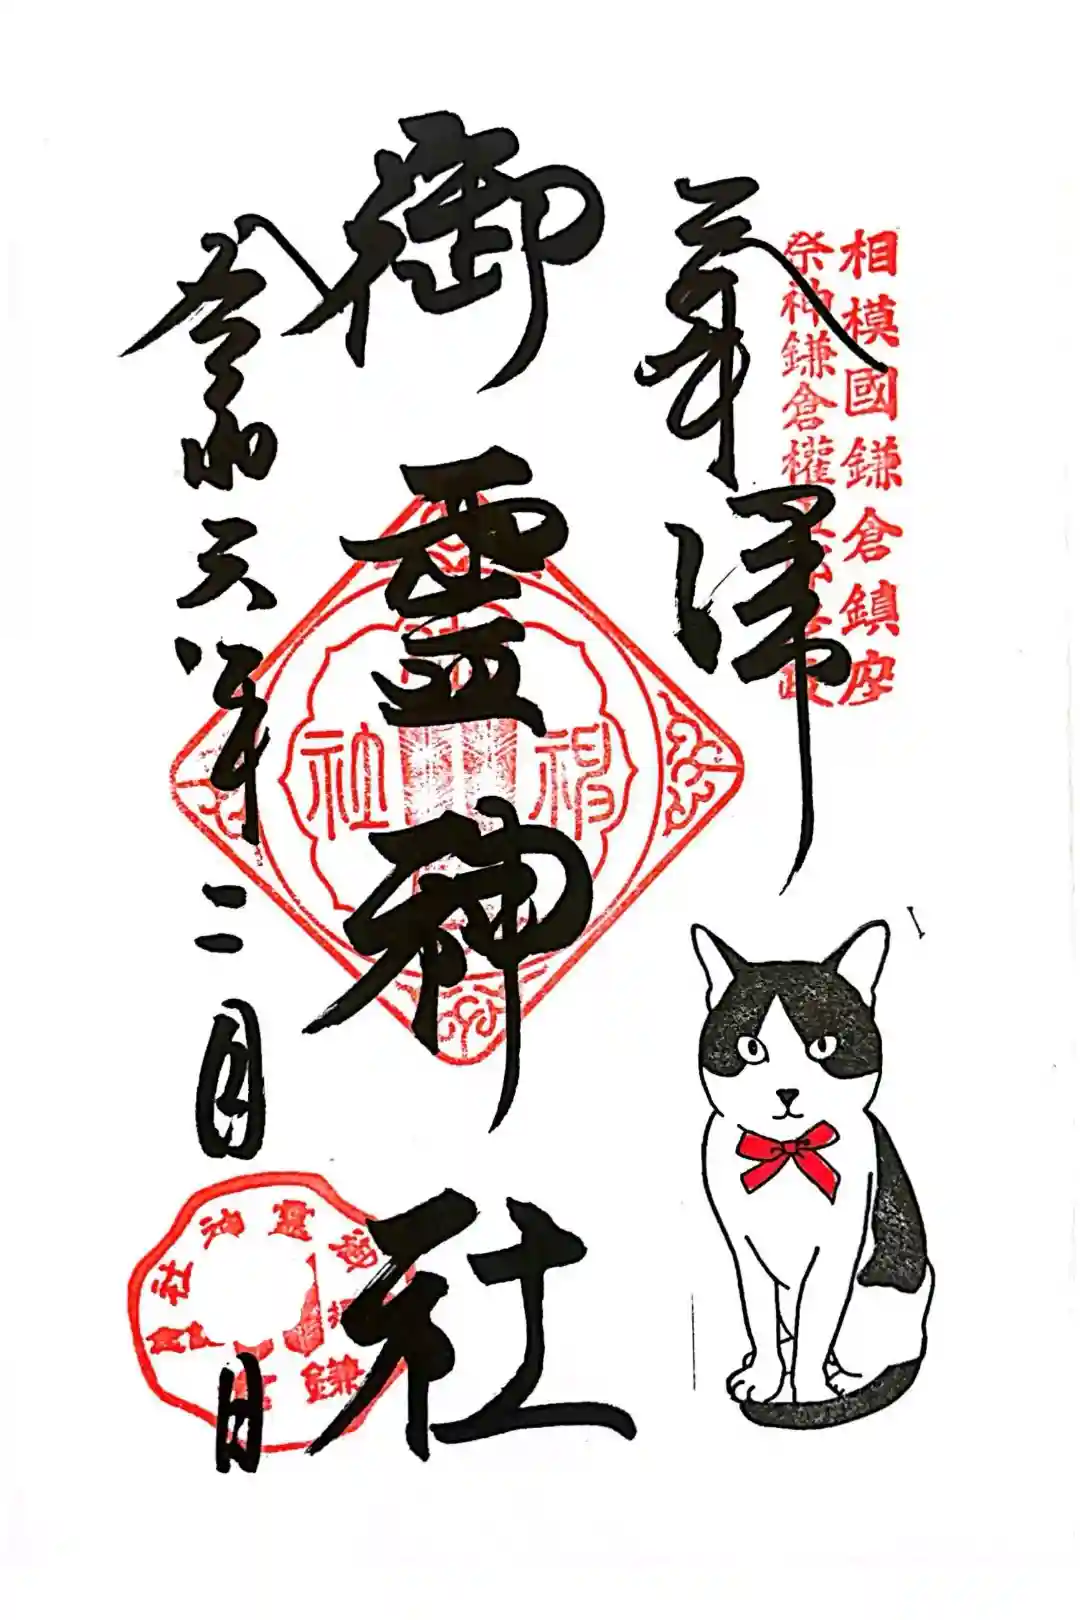 相模國鎌倉鎮座
祭神鎌倉權五郎景政
奉拝
御霊神社
令和六年二月 日
神
社
御靈神社
鎌